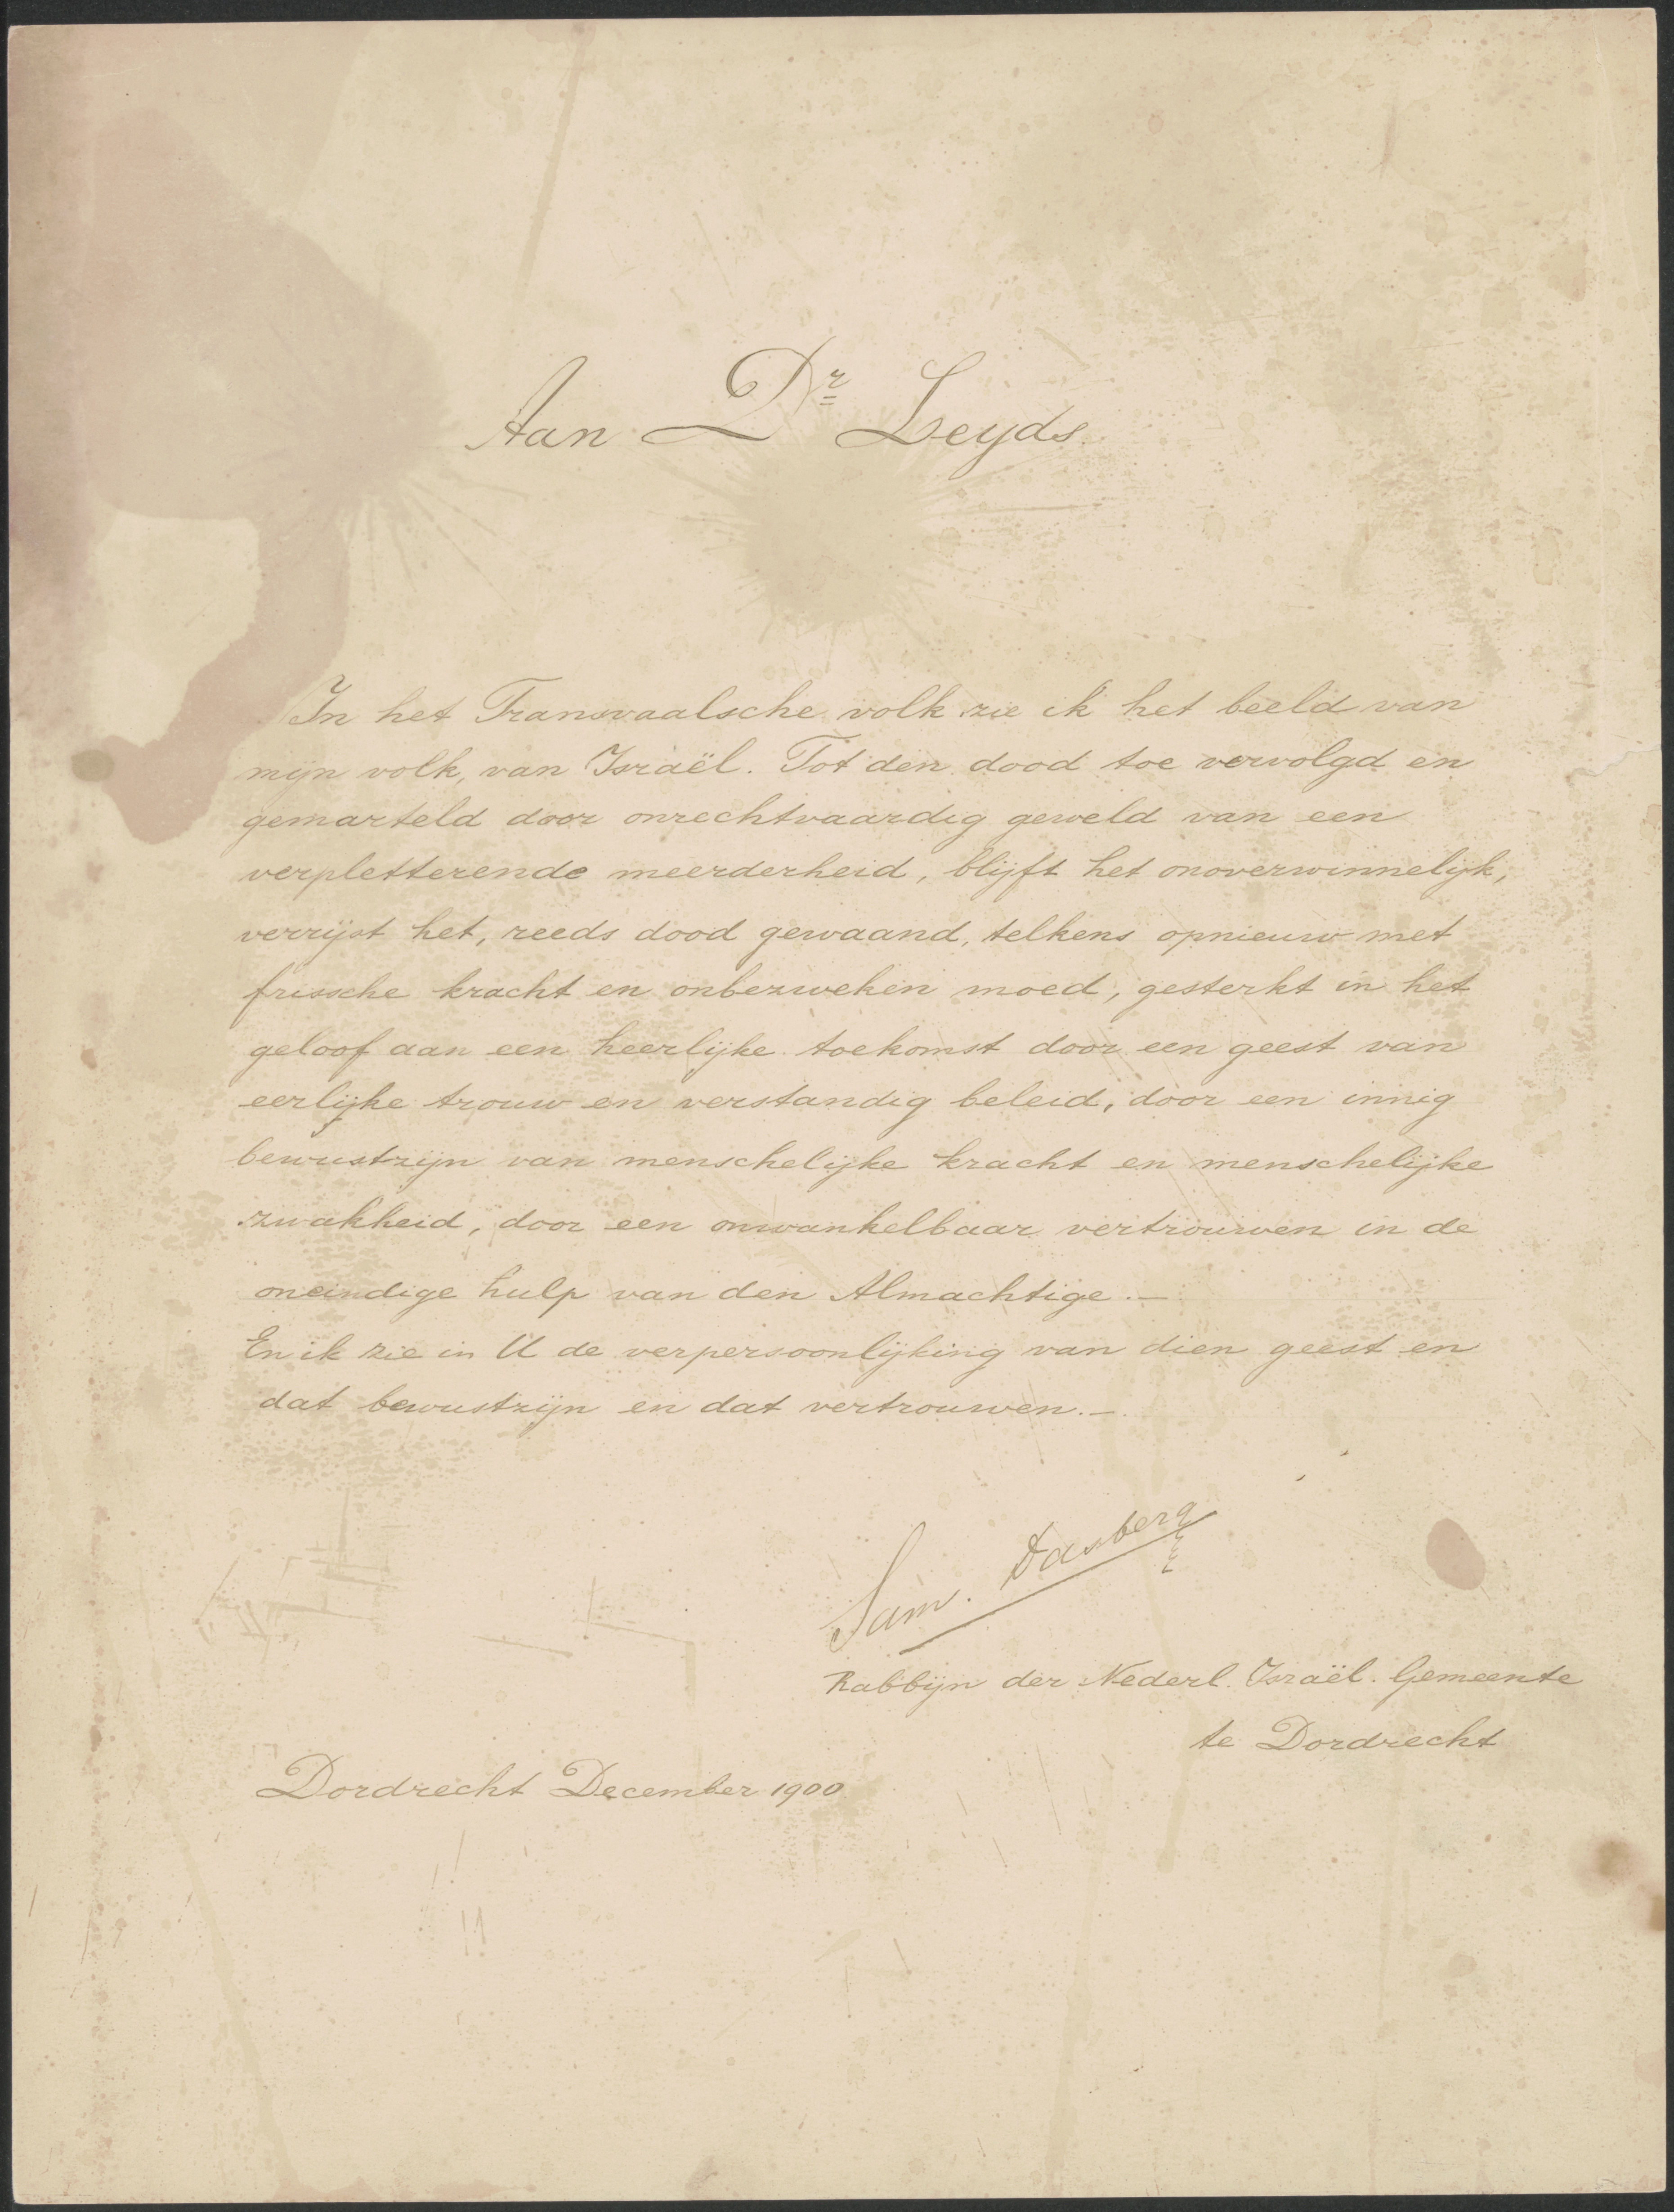 Aan Dr Leyds.
In het Transvaalsche volk zie ik het beeld van
mijn volk, van Israël. Tot den dood toe vervolgd en
gemarteld door onrechtvaardig geweld van een
verpletterende meerderheid, blijft het onoverwinnelijk,
verrijst het, reeds dood gewaand, telkens opnieuw met
frissche kracht en onbezweken moed, gesterkt in het
geloof aan een heerlijke toekomst door een geest van
eerlijke trouw en verstandig beleid, door een innig
bewustzijn van menschelijke kracht en menschelijke
zwakheid, door een onwankelbaar vertrouwen in de
oneindige hulp van den Almachtige.—
En ik zie in U de verpersoonlijking van dien geest en
dat bewustzijn en dat vertrouwen.—
Sam. Dasberg
Rabbijn der Nederl. Israël. Gemeente
te Dordrecht
Dordrecht December 1900